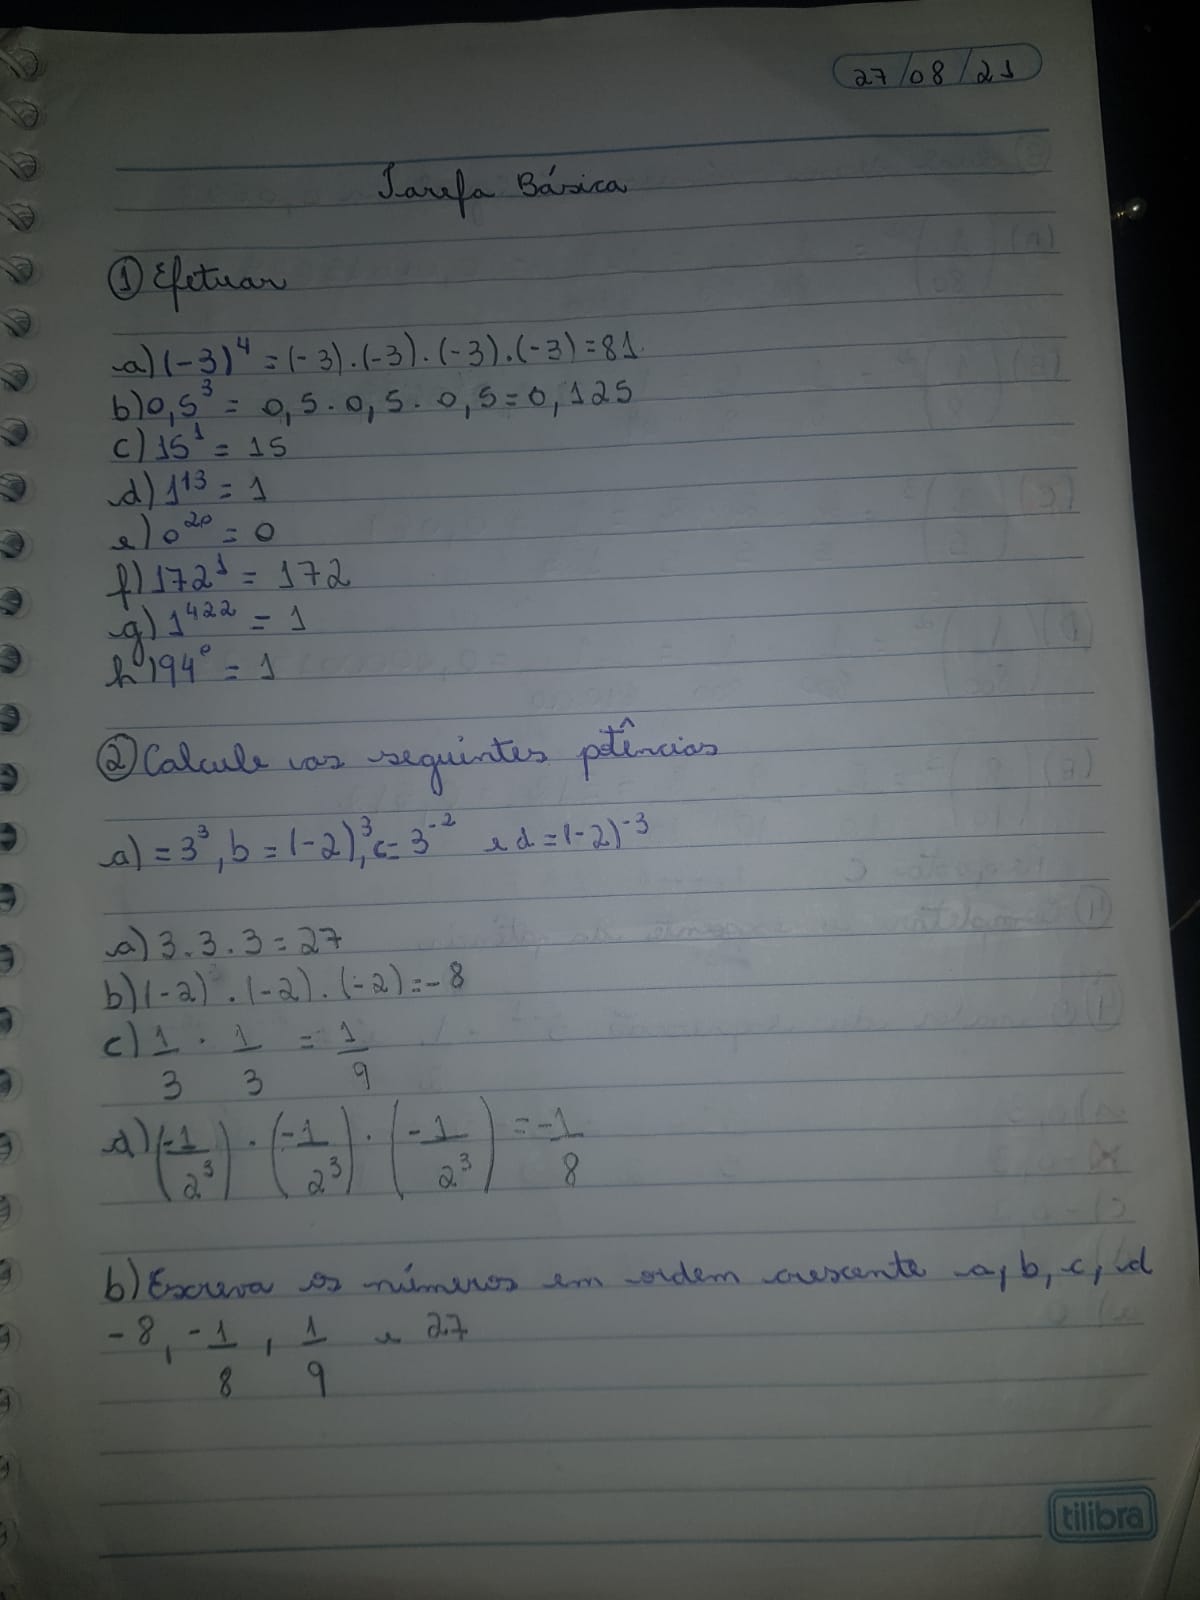 27/08/21
Tarefa Básica
① Efetuar
a) (-3)⁴ = (-3).(-3).(-3).(-3) = 81.
b) 0,5³ = 0,5 . 0,5 . 0,5 = 0,125
c) 15¹ = 15
d) 1¹³ = 1
e) 0²⁰ = 0
f) 172¹ = 172
g) 1⁴²² = 1
h) 94⁰ = 1
② Calcule as seguintes potências
a) = 3³, b = (-2)³, c = 3⁻² e d = (-2)⁻³
a) 3 . 3 . 3 = 27
b) (-2) . (-2) . (-2) = -8
c) 1/3 . 1/3 = 1/9
d) (-1/2³) . (-1/2³) . (-1/2³) = -1/8
b) Escreva os números em ordem crescente a, b, c, d
-8, -1/8, 1/9 e 27
tilibra